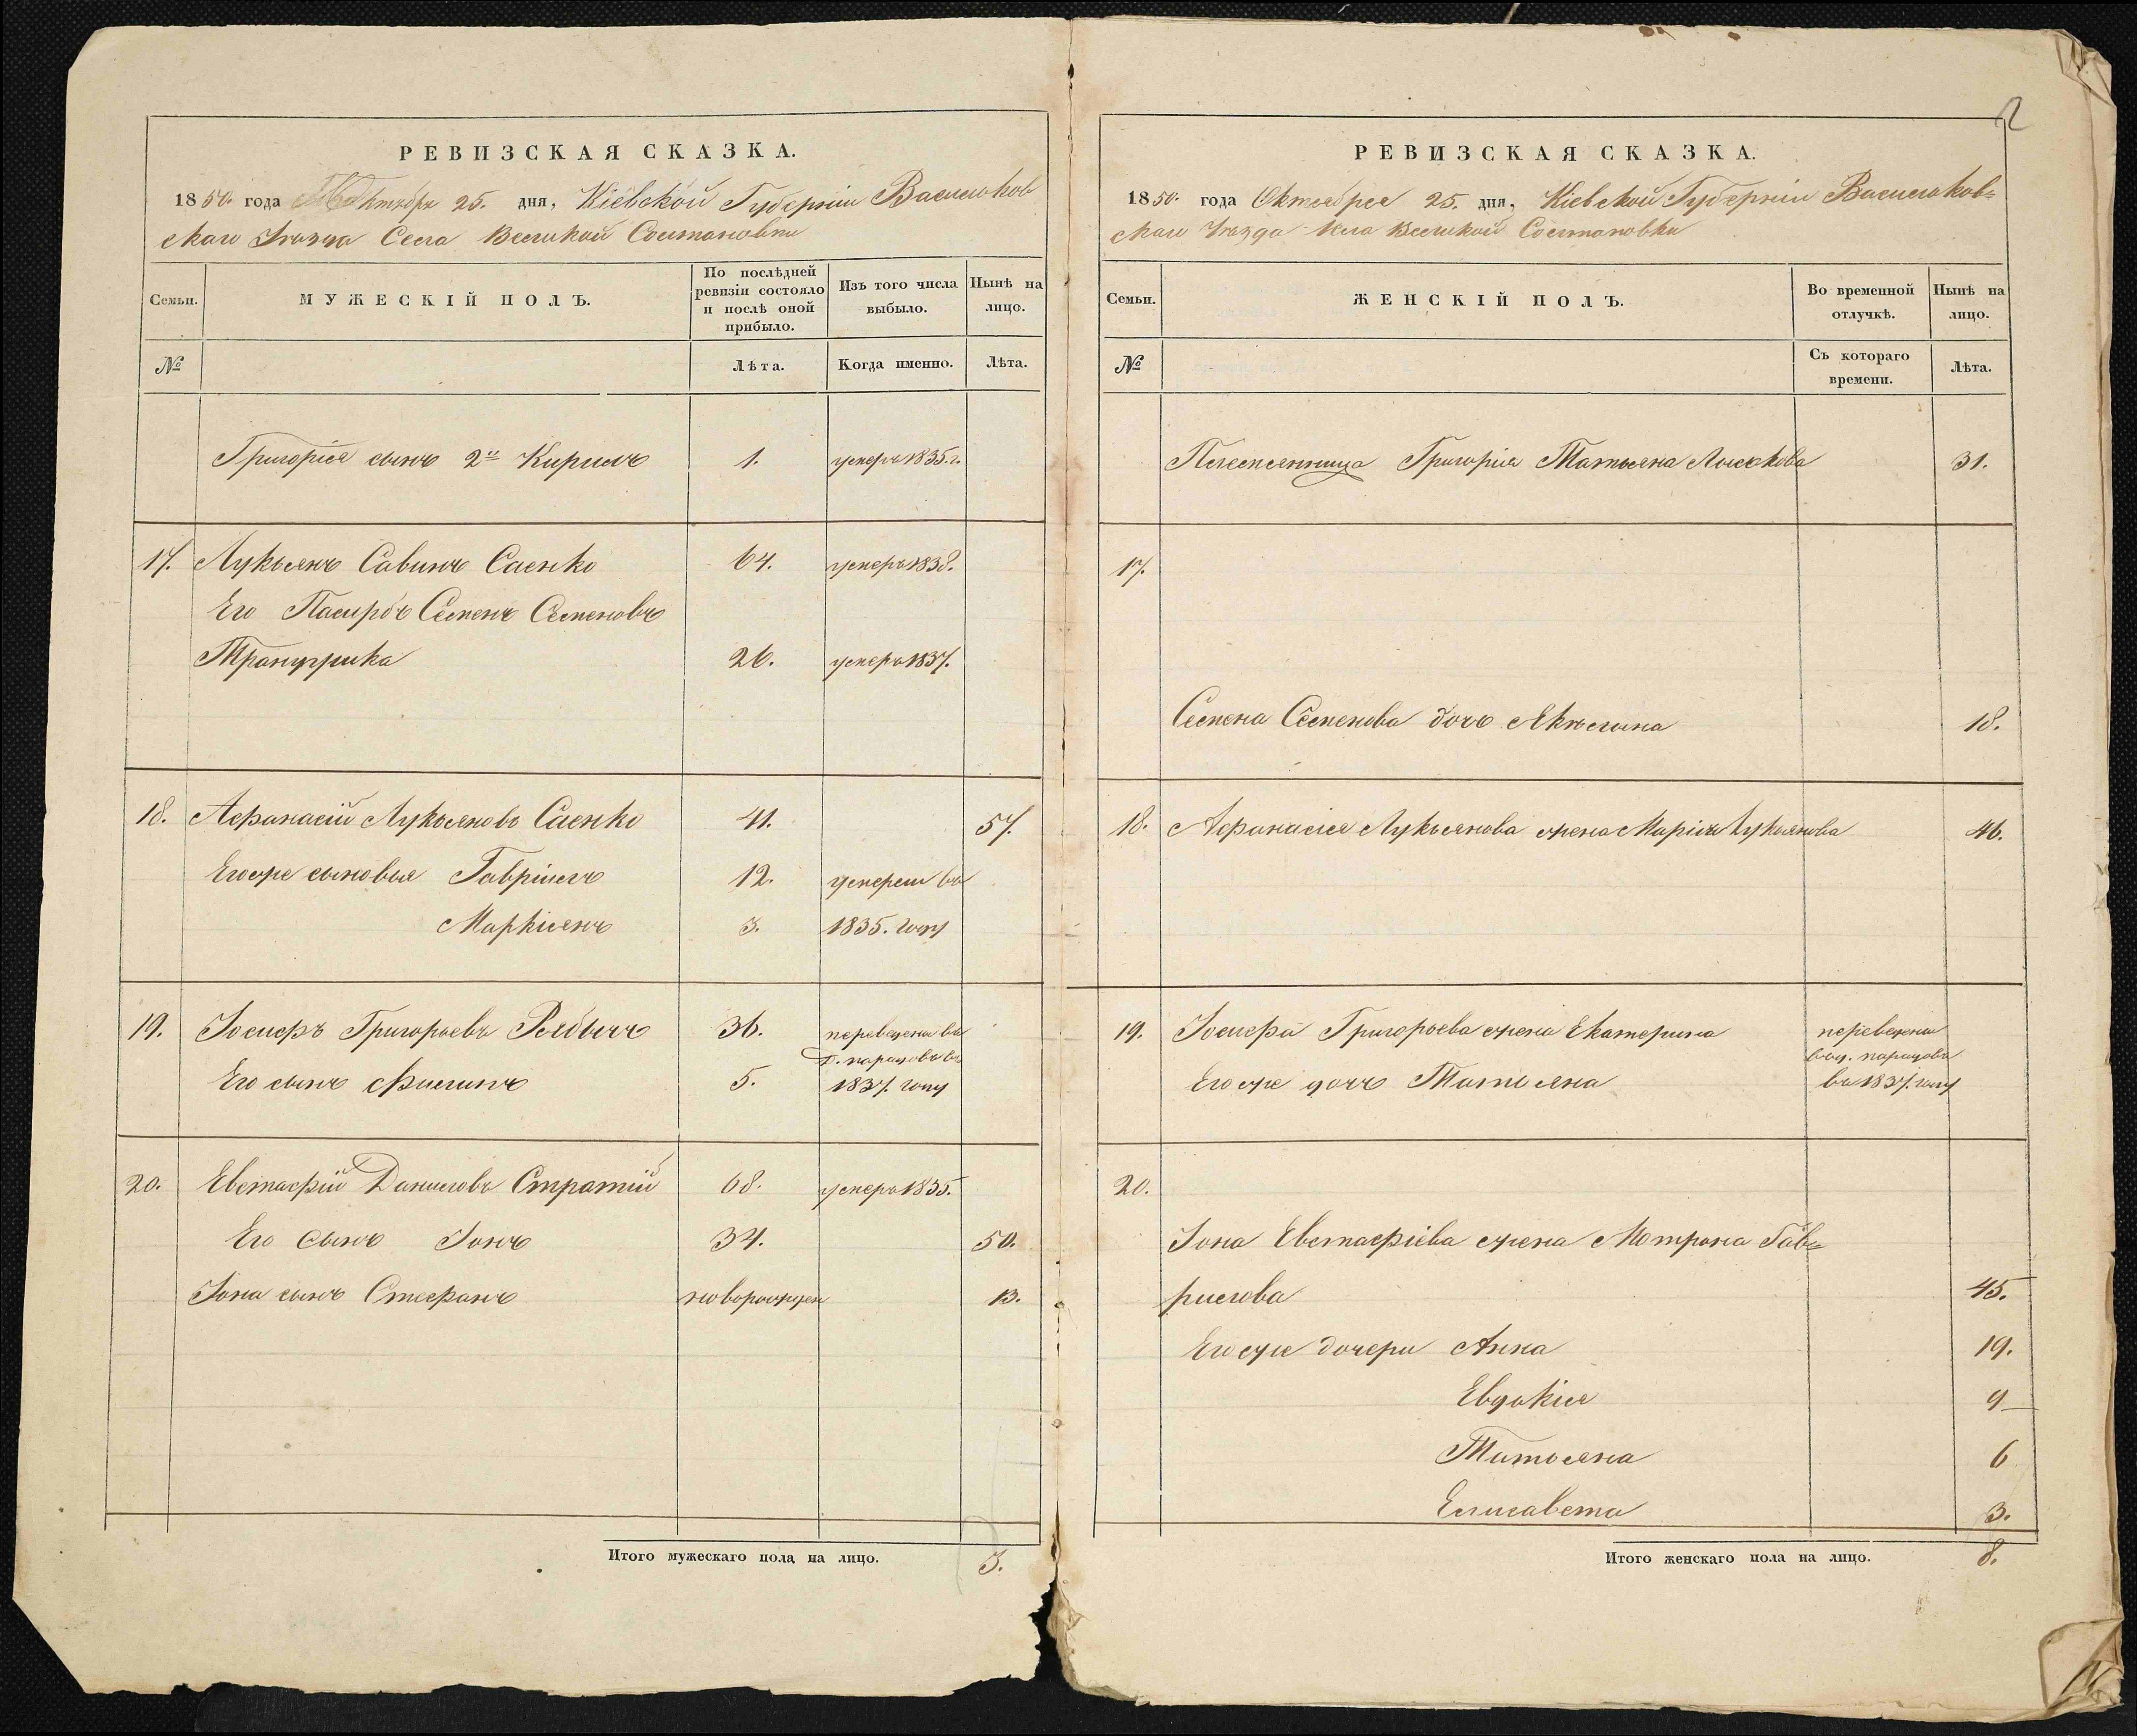 РЕВИЗСКАЯ СКАЗКА.
1850. года Октября 25. дня, Кіевской Губерніи Васильков
скаго Уѣзда Села Великой Солтановки
Семьи.
МУЖЕСКІЙ ПОЛЪ.
По послѣдней
ревизіи состояло
и послѣ оной
прибыло.
Изъ того числа
выбыло.
Нынѣ на
лицо.
№
Лѣта.
Когда именно.
Лѣта.
Григорія сынъ 2й Кирилъ 1. умеръ 1835. г.
17. Лукьянъ Савинъ Саенко 64. умеръ 1838.
Его Пасирбъ Семенъ Семеновъ
26. умеръ 1837.
18. Афанасій Лукьяновъ Саенко 41. 57.
Егоже сыновья Гавріилъ 12. умерли въ
Маркіянъ 3. 1835. году
19. Іосифъ Григорьевъ Рябычъ 36. переведены въ
въ
Его сынъ Филипъ 5. 1837. году
20. Евстафій Даниловъ Стратій 68. умеръ 1835.
Его сынъ Іонъ 34. 50.
Іона сынъ Стефанъ новорожден 13.
Итого мужескаго пола на лицо. 3.
2
РЕВИЗСКАЯ СКАЗКА.
1850. года Октября 25. дня, Кіевской Губерніи Васильков=
скаго Уѣзда Села Великой Солтановки
Семьи.
ЖЕНСКІЙ ПОЛЪ.
Во временной
отлучкѣ.
Нынѣ на
лицо.
№
Съ котораго
времени.
Лѣта.
Племянница Григорія Татьяна 31.
17.
Семена Семенова дочь Акилина 18.
18. Афанасія Лукьянова жена Марія Лукьянова 46.
19. Іосифа Григорьева жена Екатерина переведены
Егоже дочь Татьяна въ 1837. году
20.
Іона Евстафіева жена Мотрона Гав=
рилова 45.
Егоже дочери Анна 19.
Евдокія 9
Татьяна 6
Елисавета 3.
Итого женскаго пола на лицо. 8.